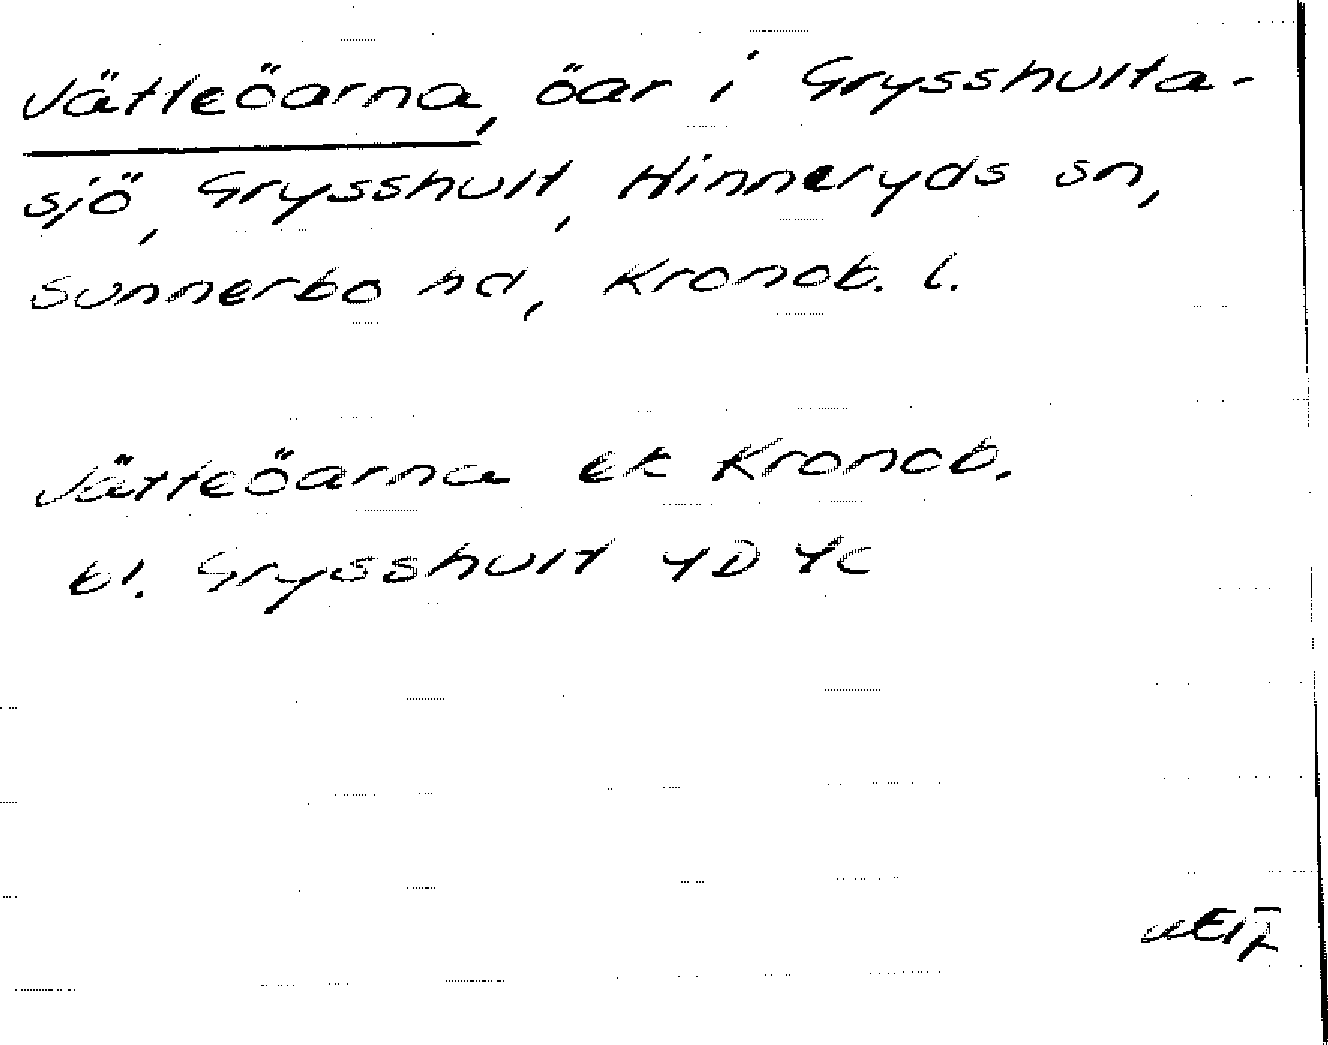 Jätteöarna, öar i Grysshulta-
sjö, Grysshult, Hinneryds sn,
Sunnerbo hd, Kronob. l.
Jätteöarna ek Kronob.
bl. Grysshult 4D 4c